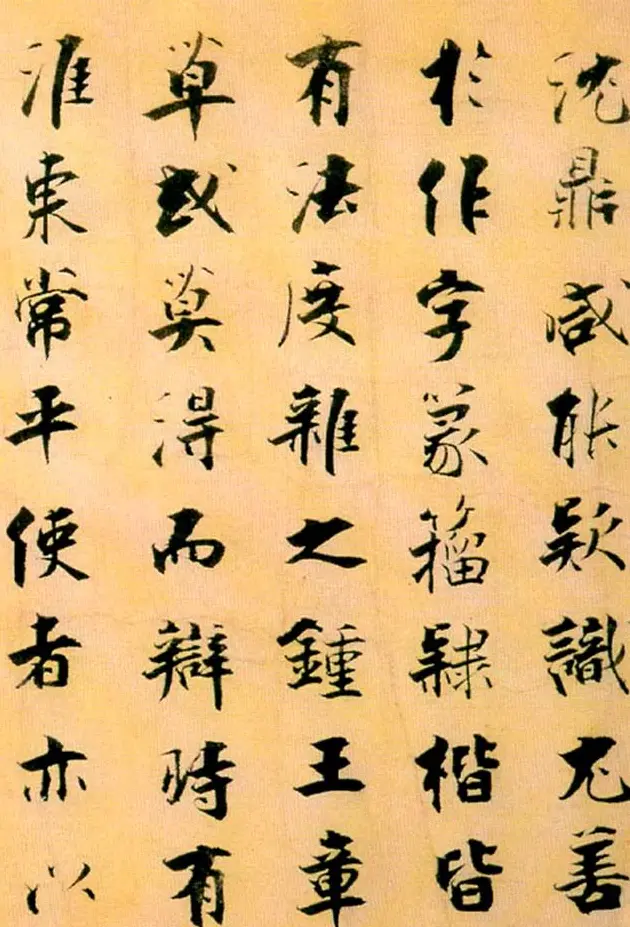 沈鼎咸能款識尤善
於作字篆籀隸楷皆
有法度雜之鍾王章
草或莫得而辯時有
淮東常平使者亦以